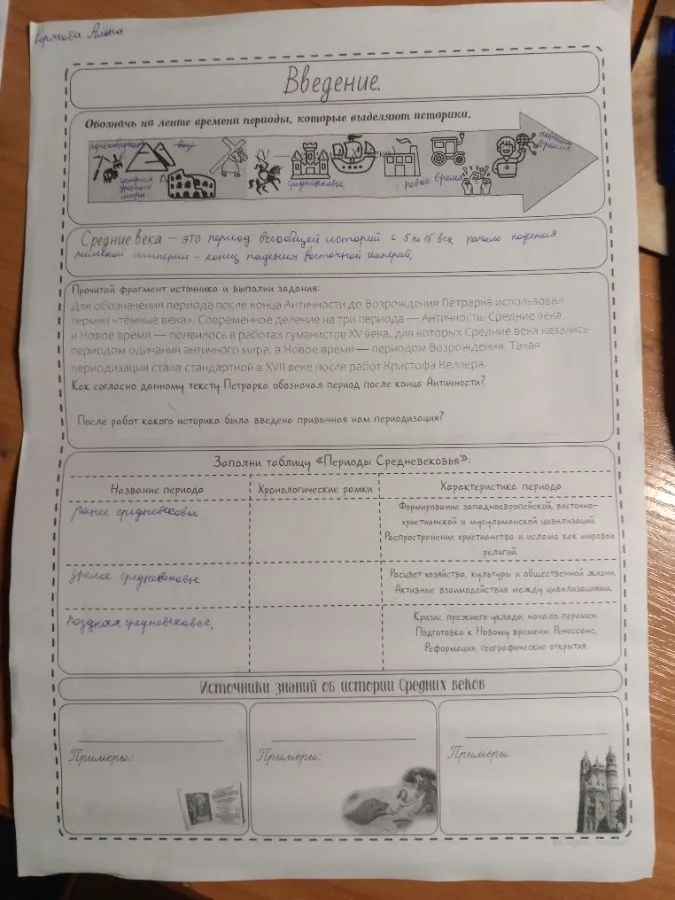 Алёна
Введение.
Обозначь на ленте времени периоды, которые выделяют историки.
история
древнего
мира
средневековье
- новое время
время
Средние века – это период всеобщей историй с 5 по 15 век начало падения
римской империи - конец падения восточной империй.
Прочитай фрагмент источника и выполни задания:
Для обозначения периода после конца Античности до Возрождения Петрарка использовал
термин «тёмные века». Современное деление на три периода — Античность, Средние века
и Новое время — появилось в работах гуманистов XV века, для которых Средние века казались
периодом одичания античного мира, а Новое время — периодом Возрождения. Такая
периодизация стала стандартной в XVII веке после работ Кристофа Келлера.
Как согласно данному тексту Петрарка обозначал период после конца Античности?
После работ какого историка была введена привычная нам периодизация?
Заполни таблицу «Периоды Средневековья»:
Название периода Хронологические рамки Характеристика периода
ранее средневековье
Формирование западноевропейской, восточно-
христианской и мусульманской цивилизаций.
Распространение христианства и ислама как мировых
религий
зрелое средневековье
Расцвет хозяйства, культуры и общественной жизни.
Активные взаимодействия между цивилизациями.
поздняя средневековье.
Кризис прежнего уклада, начало перемен.
Подготовка к Новому времени: Ренессанс,
Реформация, географические открытия.
Источники знаний об истории Средних веков
Примеры: Примеры: Примеры: